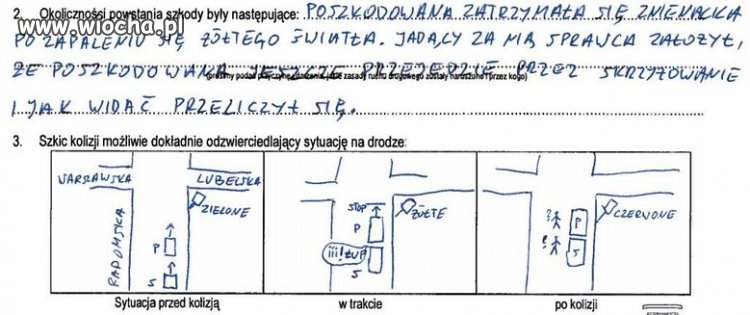 www.wiocha.pl
2. Okoliczności powstania szkody były następujące: POSZKODOWANA ZATRZYMAŁA SIĘ ZNIENACKA
PO ZAPALENIU SIĘ ŻÓŁTEGO ŚWIATŁA. JADĄCY ZA NIĄ SPRAWCA ZAŁOŻYŁ,
ŻE POSZKODOWANA JESZCZE PRZEJEDZIE PRZEZ SKRZYŻOWANIE
(prosimy podać przyczynę zdarzenia, jakie zasady ruchu drogowego zostały naruszone i przez kogo)
I JAK WIDAĆ PRZELICZYŁ SIĘ.
3. Szkic kolizji możliwie dokładnie odzwierciedlający sytuację na drodze:
WARSZAWSKA LUBELSKA
ZIELONE
RADOMSKA
P
S
Sytuacja przed kolizją
STOP
ŻÓŁTE
P
iii!ŁUP
S
w trakcie
CZERWONE
? P
? S
po kolizji